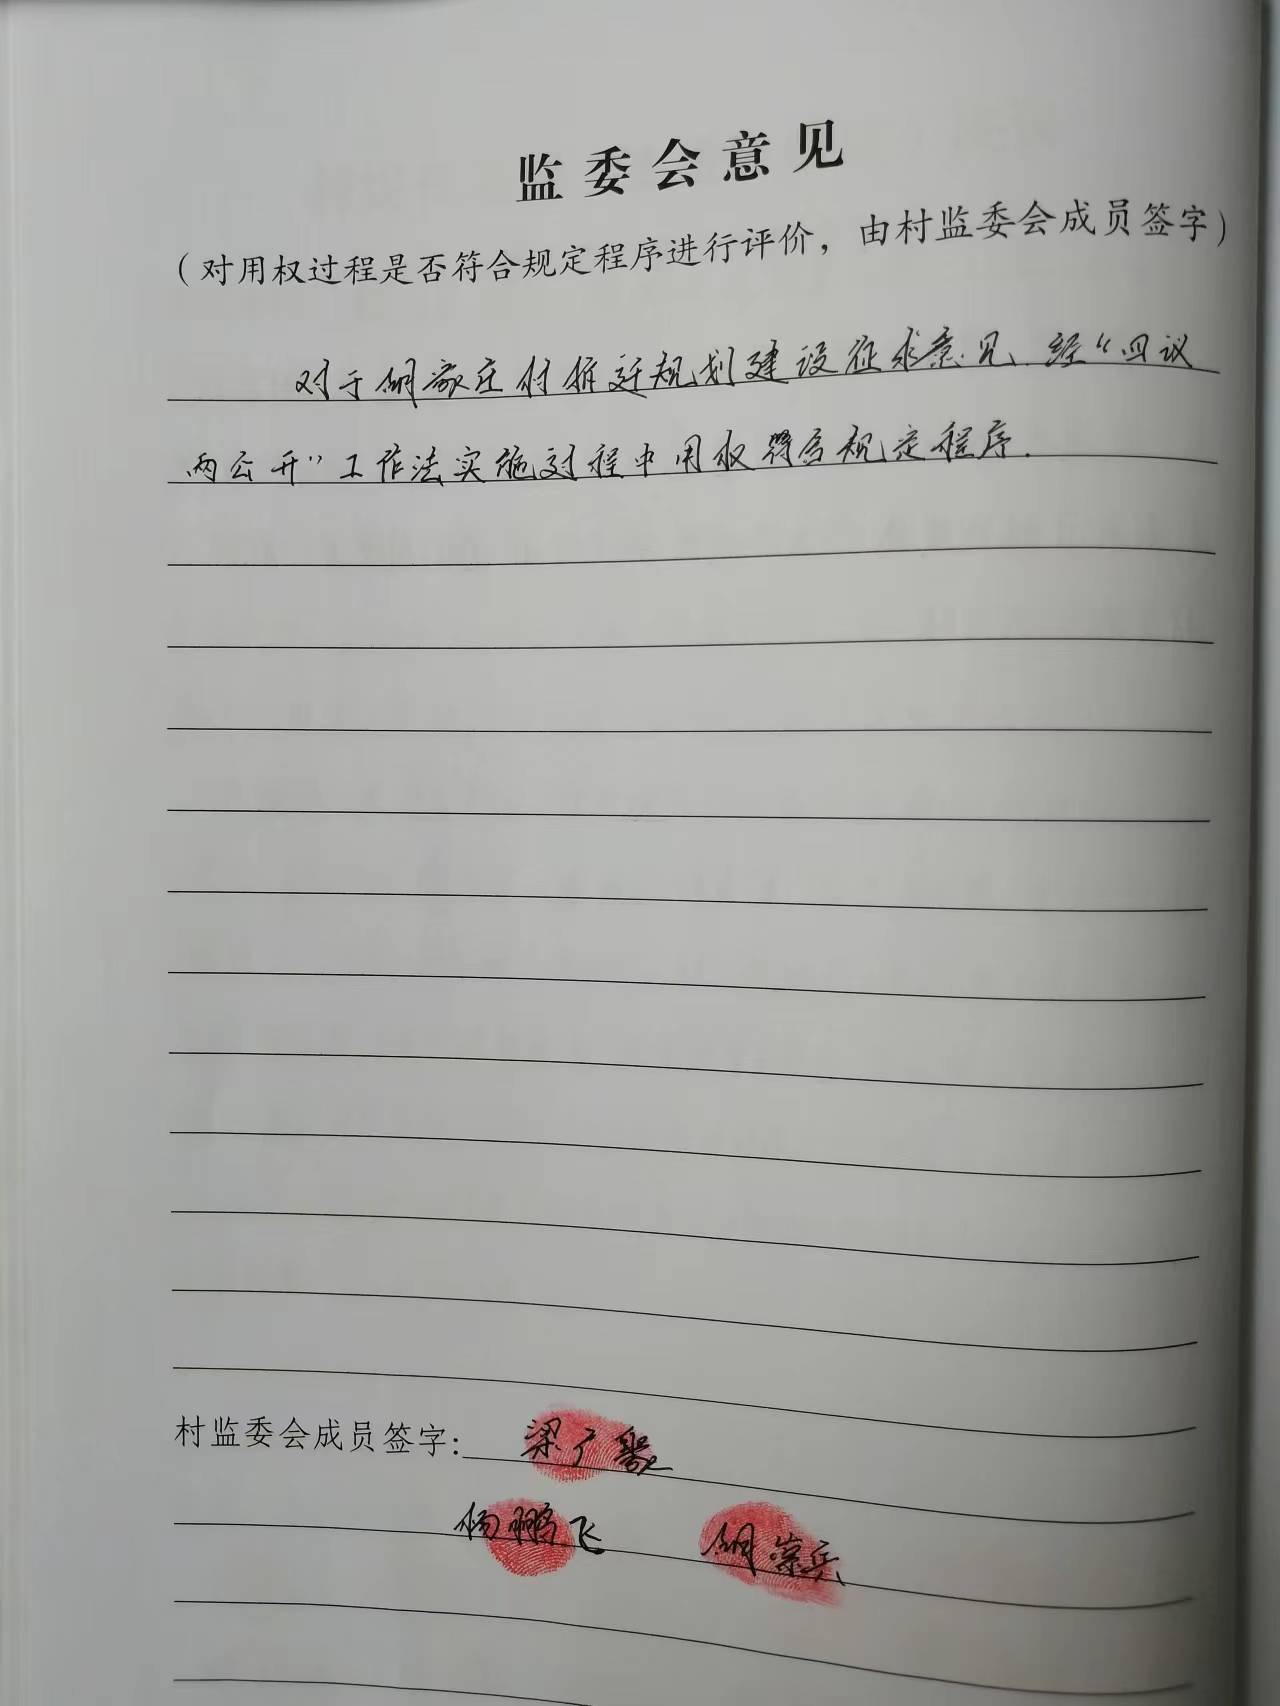 监委会意见
（对用权过程是否符合规定程序进行评价，由村监委会成员签字）
对于胡家庄村拆迁规划建设征求意见.经“四议
两公开”工作法实施过程中用权符合规定程序.
村监委会成员签字：梁广聚
杨鹏飞 胡崇兵